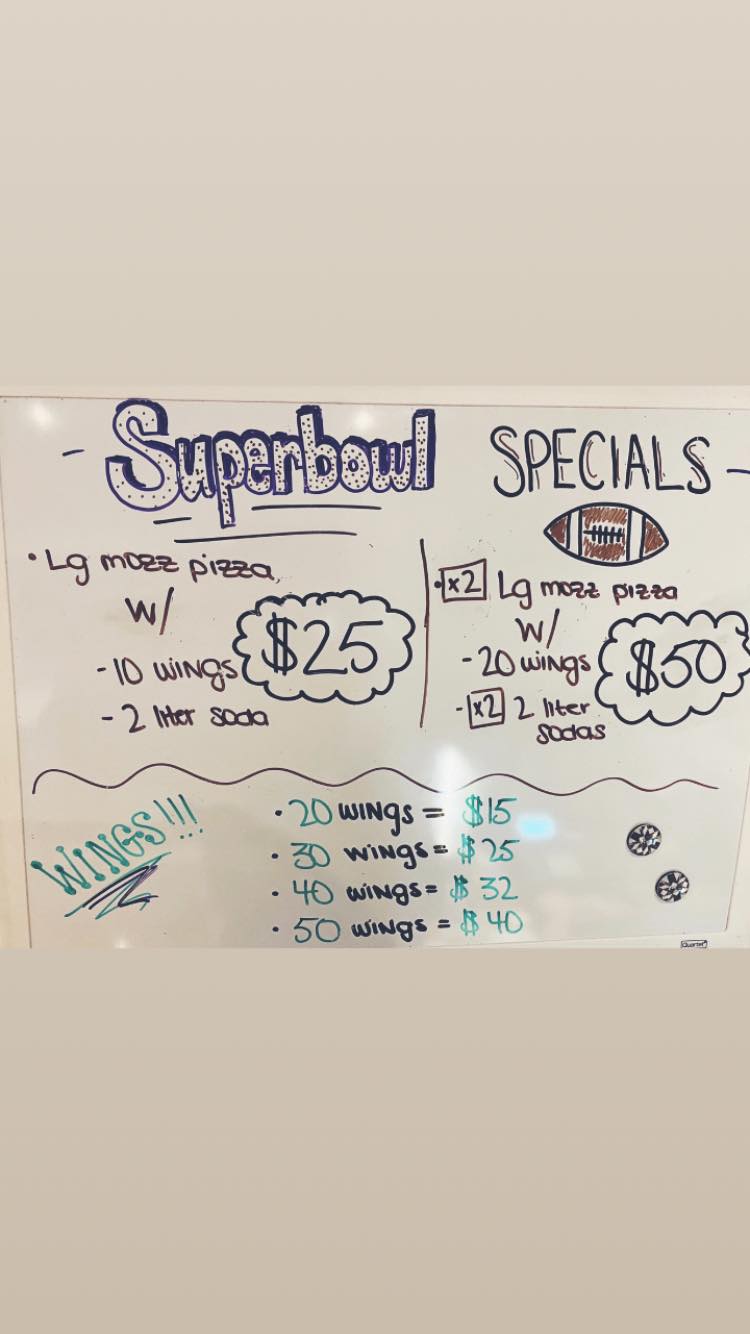 - Superbowl SPECIALS -
• Lg mozz pizza
w/
- 10 wings
- 2 liter soda
$25
• x2 Lg mozz pizza
w/
- 20 wings
- x2 2 liter
sodas
$50
WINGS!!!
• 20 wings = $15
• 30 wings = $25
• 40 wings = $32
• 50 wings = $40
Quartet